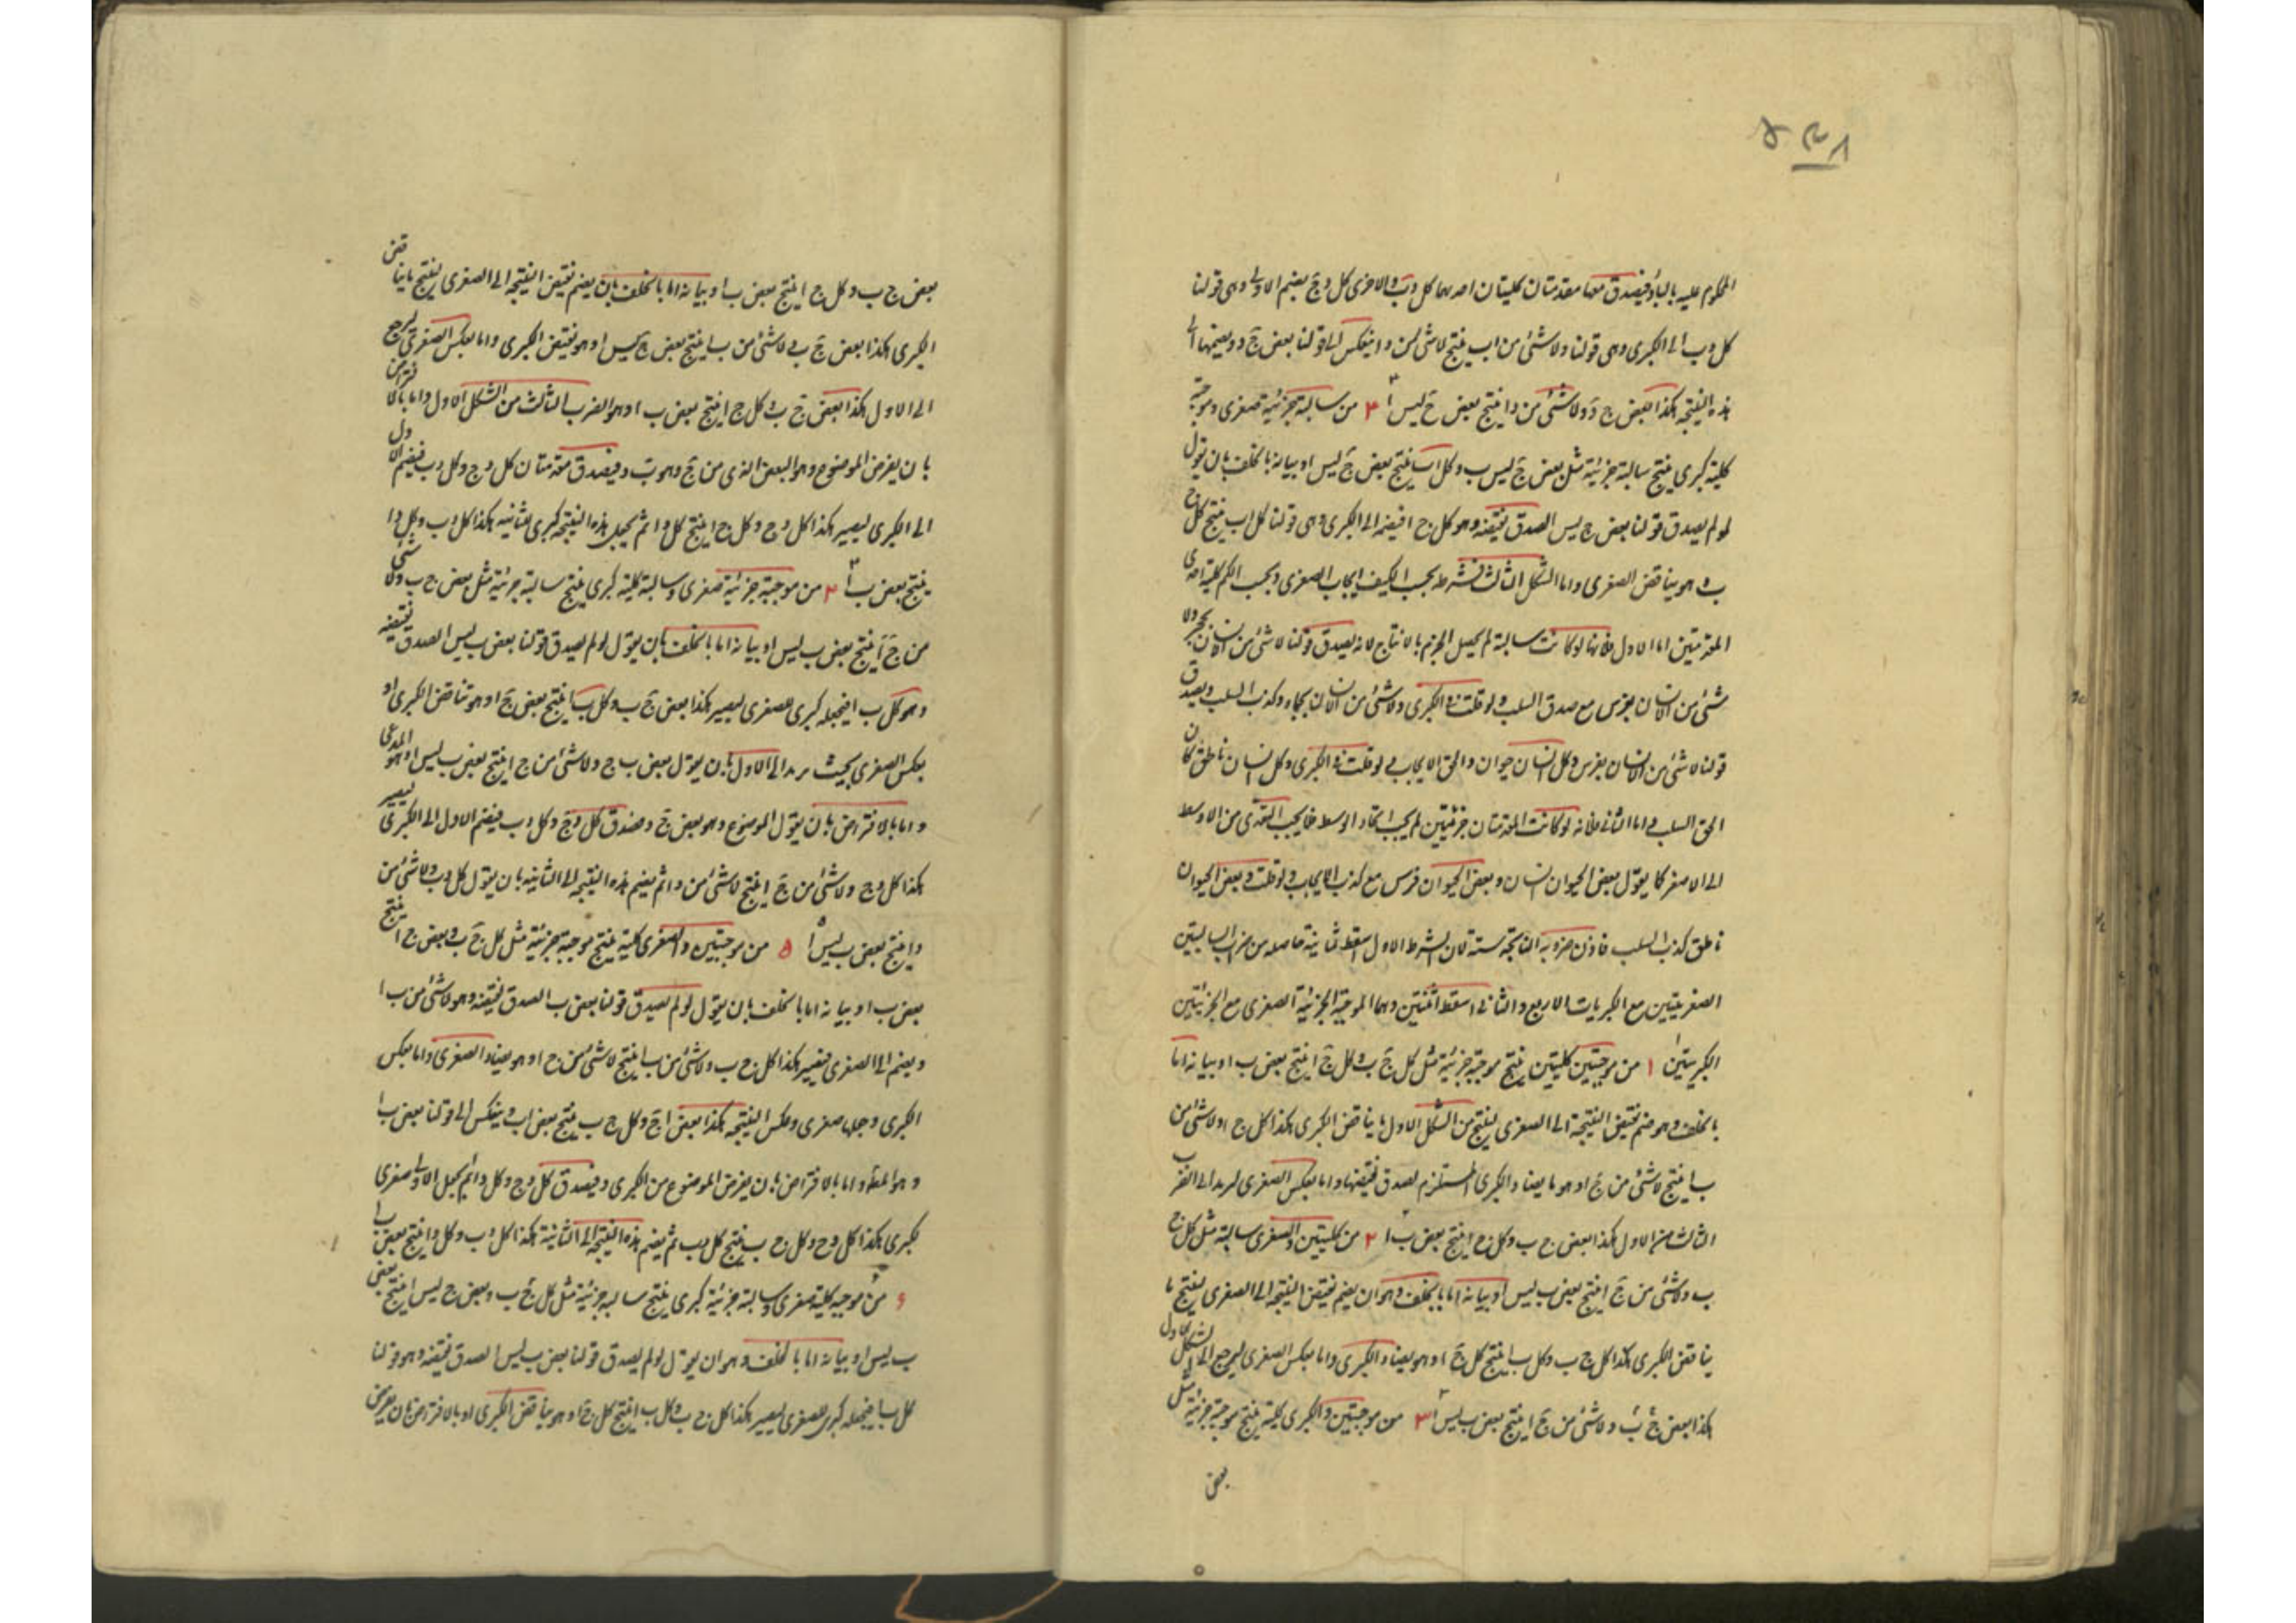 المحكوم عليه بالباء فيصدق معنا مقدمتان كليتان احدهما كل د ب والاخرى كل د ج يضم الاولى وهى قولنا
كل د ب الى الكبرى وهى قولنا ولا شئ من ا ب ينتج لا شئ من د ا ينعكس الى قولنا بعض ج د ويضمها الى
هذه النتيجة هكذا بعض ج د ولا شئ من د ا ينتج بعض ج ليس ا ٤ من سالبة جزئية صغرى وموجبة
كلية كبرى ينتج سالبة جزئية مثل بعض ج ليس ب وكل ا ب ينتج بعض ج ليس ا وبيانه بالخلف بان يقول
لو لم يصدق قولنا بعض ج ليس ا لصدق نقيضه وهو كل ج ا فيضم الى الكبرى وهى قولنا كل ا ب ينتج كل ج
ب هو يناقض الصغرى واما الشكل الثالث فشرطه بحسب الكيف ايجاب الصغرى وبحسب الكم كلية احدى
المقدمتين اما الاول فلانها لو كانت سالبة لم يحصل الجزم بالانتاج لانه يصدق قولنا لا شئ من الانسان بحجر ولا
شئ من الانسان بفرس مع صدق السلب ولو قلت فى الكبرى ولا شئ من الانسان بجماد وكذب السلب ويصدق
قولنا لا شئ من الانسان بفرس وكل انسان حيوان والحق الايجاب ولو قلت فى الكبرى وكل انسان ناطق كان
الحق السلب واما الثانى فلانه لو كانت المقدمتان جزئيتين لم يجب اتحاد الوسط فلا يجب التعدى من الاوسط
الى الاصغر كما يقول بعض الحيوان انسان وبعض الحيوان فرس مع كذب الايجاب ولو قلت وبعض الحيوان
ناطق كذب السلب فاذن ضروبه الناتجة ستة لان الشرط الاول اسقط ثمانية حاصله من ضرب السالبتين
الصغريتين مع الكبريات الاربع والثانى اسقط اثنتين وهما الموجبة الجزئية الصغرى مع الجزئيتين
الكبريتين ١ من موجبتين كليتين ينتج موجبة جزئية مثل كل ج ب وكل ج ا ينتج بعض ب ا وبيانه اما
بالخلف وهو ضم نقيض النتيجة الى الصغرى لينتج من الشكل الاول ما يناقض الكبرى هكذا كل ج ب ولا شئ من
ب ا ينتج لا شئ من ج ا وهو ما يضاد الكبرى المستلزم لصدق نقيضها واما بعكس الصغرى ليرد الى الضرب
الثالث من الاول هكذا بعض ج ب وكل ج ا ينتج بعض ب ا ٢ من كليتين والصغرى سالبة مثل كل ج
ب ولا شئ من ج ا ينتج بعض ب ليس ا وبيانه اما بالخلف وهو ان يضم نقيض النتيجة الى الصغرى لينتج ما
يناقض الكبرى هكذا كل ج ب وكل ب ا ينتج كل ج ا وهو يضاد الكبرى واما بعكس الصغرى ليرجع الى الشكل الاول
هكذا بعض ج ب ولا شئ من ج ا ينتج بعض ب ليس ا ٣ من موجبتين والكبرى كلية ينتج موجبة جزئية مثل
بعض
بعض ج ب وكل ج ا ينتج بعض ب ا وبيانه اما بالخلف بان يضم نقيض النتيجة الى الصغرى لينتج ما يناقض
الكبرى هكذا بعض ج ب لا شئ من ب ا ينتج بعض ج ليس ا وهو نقيض الكبرى واما بعكس الصغرى ليرجع
الى الاول هكذا بعض ج ب وكل ج ا ينتج بعض ب ا وهو الضرب الثالث من الشكل الاول واما بالافتراض
بان يفرض الموضوع وهو البعض الذى من ج وهو ب د فيصدق مقدمتان كل د ج وكل د ب فيضم الاول
الى الكبرى ليصير هكذا كل د ج وكل ج ا ينتج كل د ا ثم يجعل هذه النتيجة كبرى للثانية هكذا كل د ب وكل د ا
ينتج بعض ب ا ٤ من موجبة جزئية صغرى وسالبة كلية كبرى ينتج سالبة جزئية مثل بعض ج ب ولا شئ
من ج ا ينتج بعض ب ليس ا وبيانه اما بالخلف بان يقول لو لم يصدق قولنا بعض ب ليس ا لصدق نقيضه
وهو كل ب ا فيجعله كبرى للصغرى ليصير هكذا بعض ج ب وكل ب ا ينتج بعض ج ا وهو تناقض الكبرى او
بعكس الصغرى بحيث يرد الى الاول بان يقول بعض ب ج ولا شئ من ج ا ينتج بعض ب ليس ا وهو المدعى
واما بالافتراض بان يقول الموضوع وهو بعض ج د صدق كل د ج وكل د ب فيضم الاول الى الكبرى ليصير
هكذا كل د ج ولا شئ من ج ا ينتج لا شئ من د ا ثم يضم هذه النتيجة الى الثانية بان يقول كل د ب ولا شئ من
د ا ينتج بعض ب ليس ا ٥ من موجبتين والصغرى كلية ينتج موجبة جزئية مثل كل ج ب وبعض ج ا ينتج
بعض ب ا وبيانه اما بالخلف بان يقول لو لم يصدق قولنا بعض ب ا لصدق نقيضه وهو لا شئ من ب ا
ويضم الى الصغرى فيصير هكذا كل ج ب ولا شئ من ب ا ينتج لا شئ من ج ا وهو يضاد الصغرى واما بعكس
الكبرى وجعلها صغرى وعكس النتيجة هكذا بعض ا ج وكل ج ب ينتج بعض ا ب وينعكس الى قولنا بعض ب ا
وهو المط واما بالافتراض بان يفرض الموضوع من الكبرى د فيصدق كل د ج وكل د ا ثم يجعل الاولى صغرى
لكبرى هكذا كل د ج وكل ج ب ينتج كل د ب ثم يضم هذه النتيجة الى الثانية هكذا كل د ب وكل د ا ينتج بعض ب ا
٦ من موجبه كلية صغرى وسالبة جزئية كبرى ينتج سالبه جزئية مثل كل ج ب وبعض ج ليس ا ينتج بعض
ب ليس ا وبيانه اما بالخلف وهو ان يقول لو لم يصدق قولنا بعض ب ليس ا لصدق نقيضه وهو قولنا
كل ب ا فيجعله كبرى للصغرى ليصير هكذا كل ج ب وكل ب ا ينتج كل ج ا وهو يناقض الكبرى او بالافتراض بان يفرض